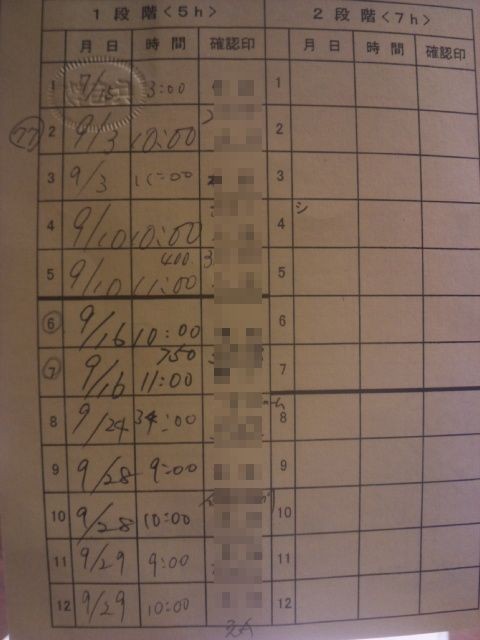 1段階〈5h〉 2段階〈7h〉
月日 時間 確認印 月日 時間 確認印
1 7/15 3:00 1
マ 2 9/3 10:00 2
3 9/3 11:00 3
4 9/10 10:00 シ 4
400
5 9/10 11:00 5
6 9/16 10:00 6
750
7 9/16 11:00 7
8 9/24 :00 8
9 9/28 9:00 9
10 9/28 10:00 10
11 9/29 9:00 11
12 9/29 10:00 12